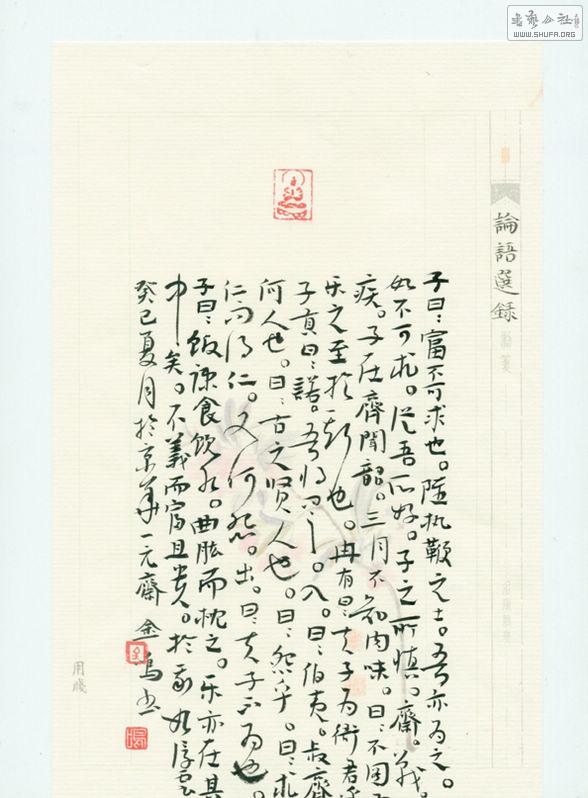 書藝公社
WWW.SHUFA.ORG
論語選錄
子曰：富不可求也。雖执鞭之士。吾亦為之。
如不可求。從吾所好。子之所慎。齋。戰。
疾。子在齊聞韶。三月不知肉味。曰：不圖
乐之至於斯也。冉有曰：夫子為衛君乎
子貢曰：諾。吾将问之。入。曰：伯夷。叔齊
何人也。曰：古之贤人也。曰：怨乎。曰：求
仁而得仁。又何怨。出。曰：夫子不為也。
子曰：飯疏食飲水。曲肱而枕之。乐亦在其
中矣。不義而富且贵。於我如浮雲
癸巳夏月於京華一元齋 金鳴书
用牋